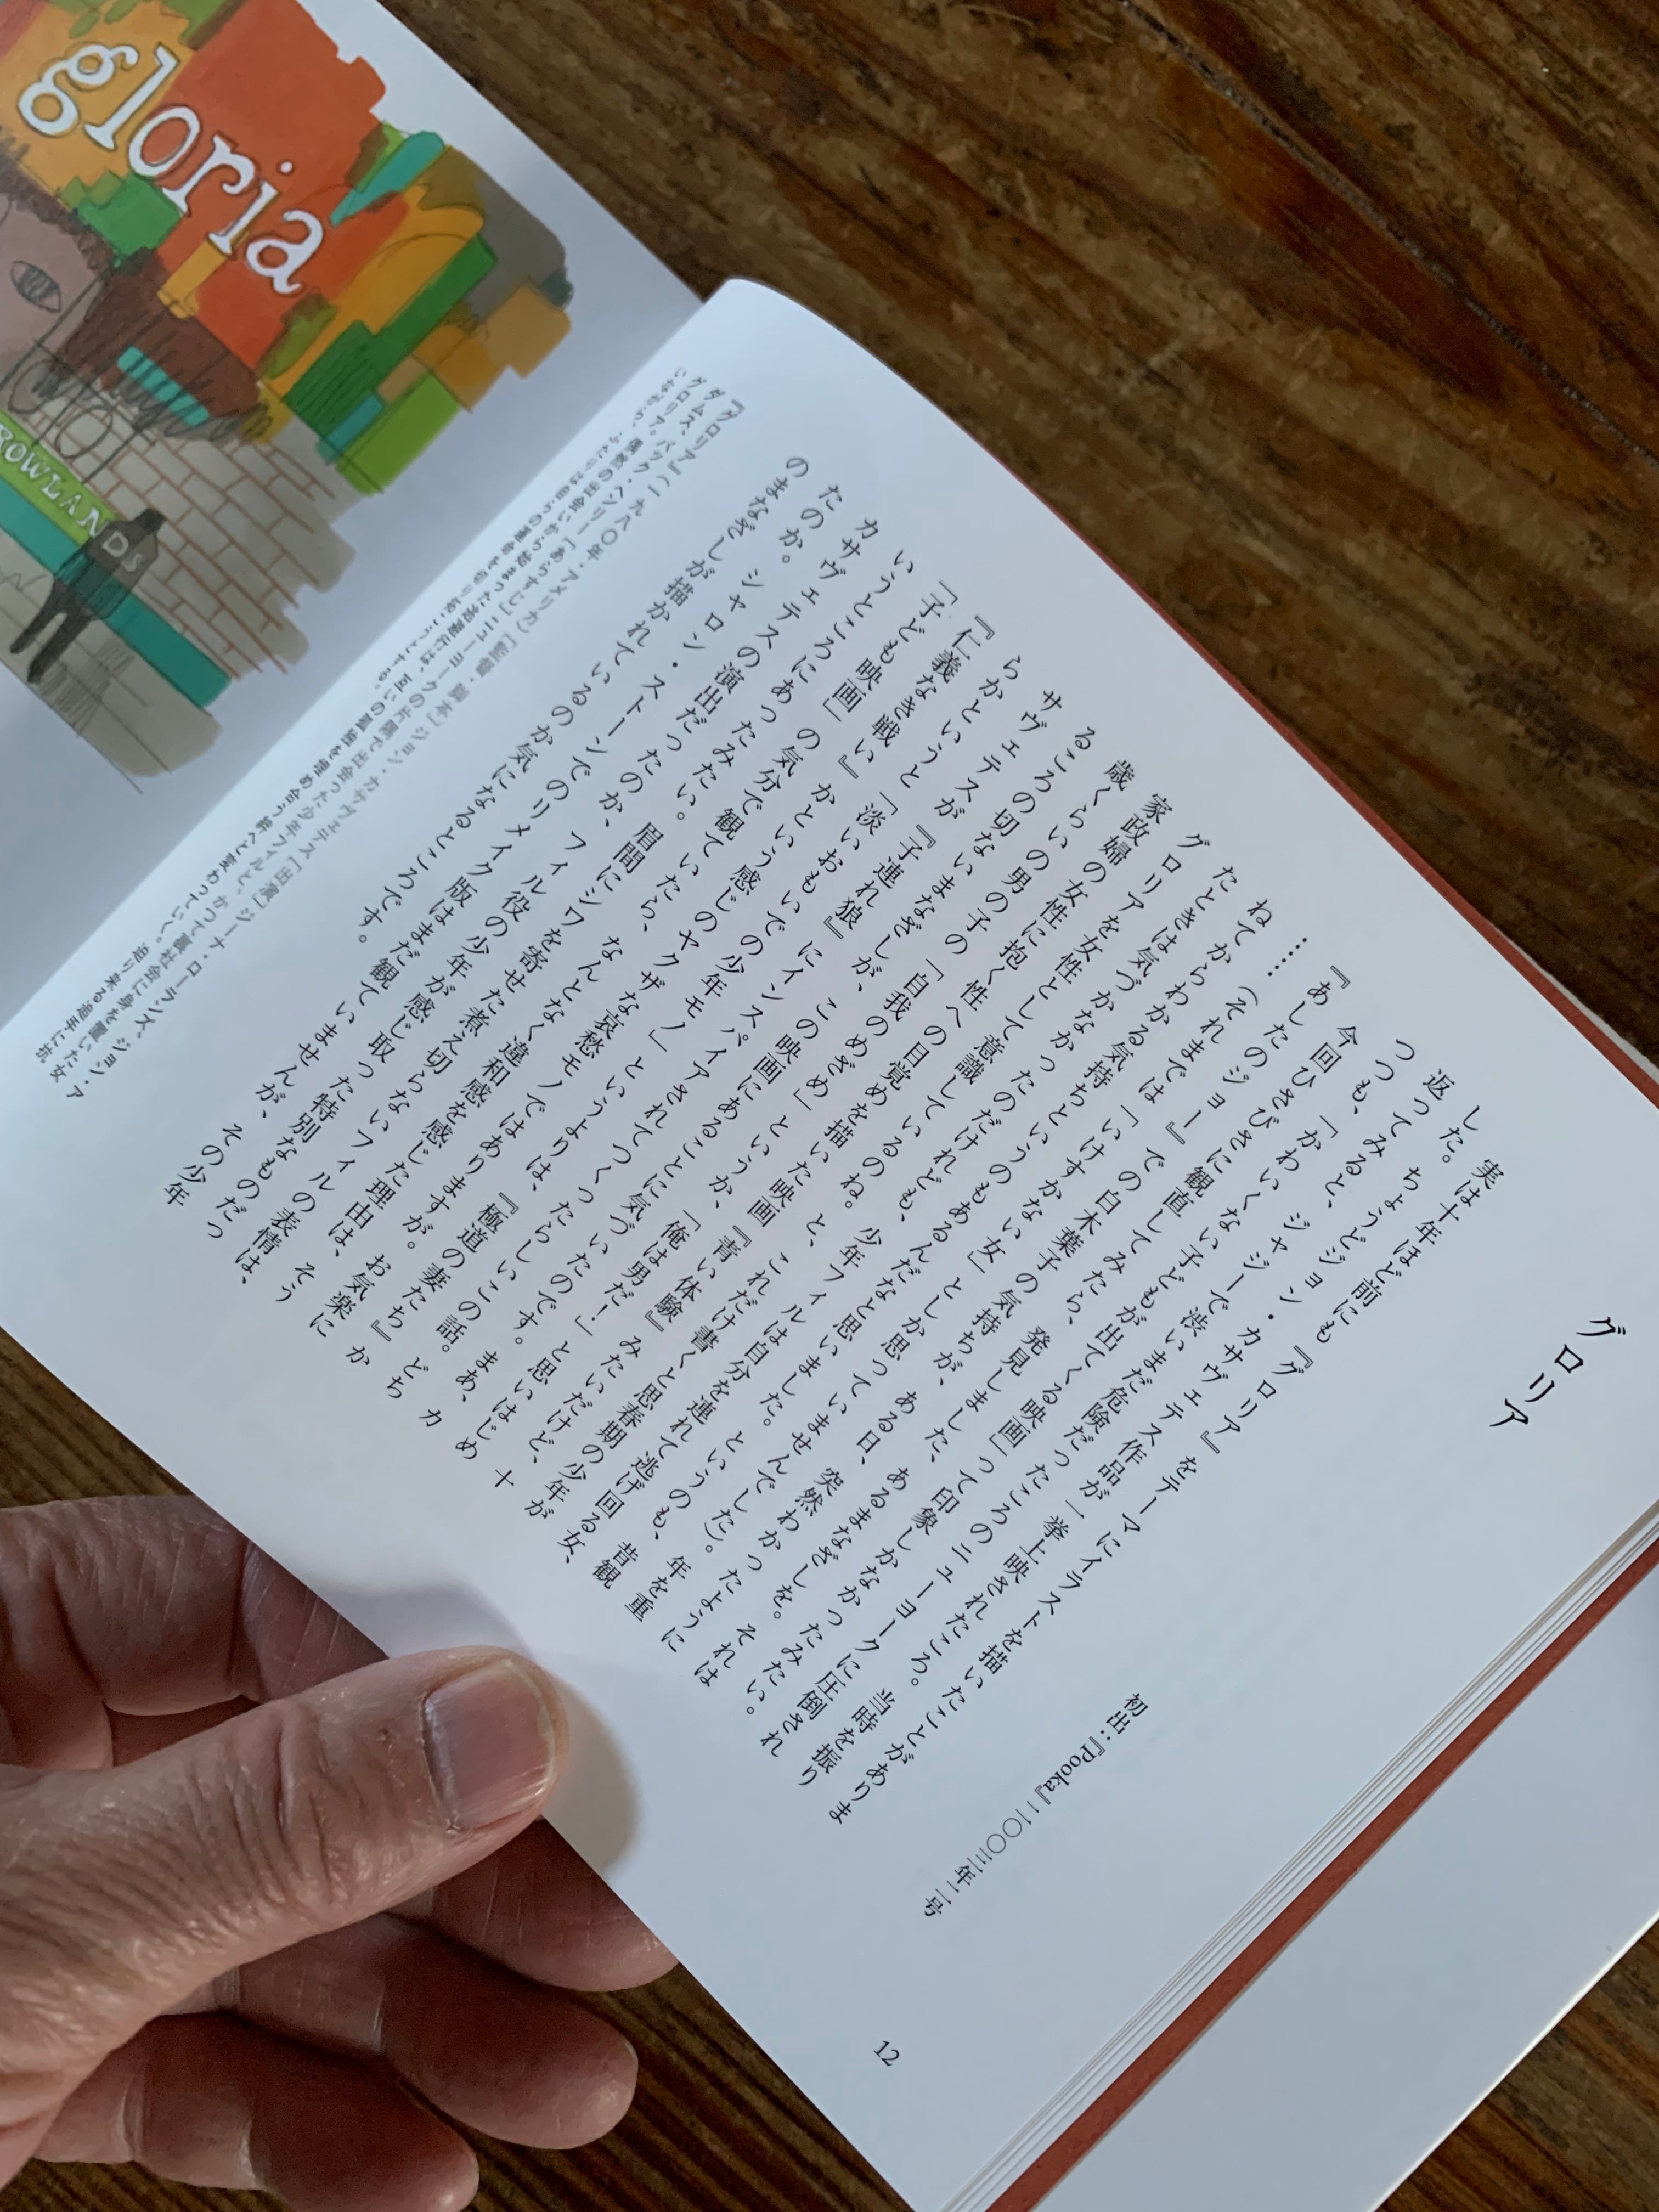 グロリア
初出：『Pooka』二〇〇三年二号
実は十年ほど前にも『グロリア』をテーマにイラストを描いたことがありま
した。ちょうどジョン・カサヴェテス作品が一挙上映されたころ。当時を振り
返ってみると、ジャンジーで渋いまだ危険だったころのニューヨークに圧倒され
つつも、「かわいくない子どもが出てくる映画」って印象しかなかったみたい。
今回ひさびさに観直してみたら、発見しました、あるまなざしを。それは
『あしたのジョー』での白木葉子の気持ちが、ある日、突然わかったように
……（それまでは「いけすかない女」としか思っていませんでした）。年を重
ねてからわかる気持ちというのもあるんだなと思いました。というのも、昔観
たときは気づかなかったのだけれども、少年フィルが自分を連れて逃げ回る女、
グロリアを女性として意識しているのね。これだけ書くと思春期の少年が
家政婦の女性に抱く性への目覚めを描いた映画『青い体験』みたいだけど、十
歳くらいの男の子の「自我のめざめ」というか、「俺は男だ！」と思いはじめ
るころの切ないまなざしが、この映画にあることに気づいたのです。まあ、カ
サヴェテスが『子連れ狼』にインスパイアされてつくったらしいこの話。どち
らかというと「淡いおもいでの少年モノ」というよりは、『極道の妻たち』か
『仁義なき戦い』かという感じのヤクザな哀愁モノではありますが。お気楽に
「子ども映画」の気分で観ていたら、なんとなく違和感を感じた理由は、そう
いうところにあったみたい。眉間にシワを寄せた煮え切らないフィルの表情は、
カサヴェテスの演出だったのか、フィル役の少年が感じ取った特別なものだっ
たのか。シャロン・ストーンでのリメイク版はまだ観ていませんが、その少年
のまなざしが描かれているのか気になるところです。
『グロリア』（一九八〇年・アメリカ）［監督・脚本］ジョン・カサヴェテス［出演］ジーナ・ローランズ、ジョン・ア
ダムス、バック・ヘンリー［あらすじ］ニューヨークの片隅で出会った少年フィルと、かつて裏社会に身を置いた女
グロリア。偶然の出会いから始まった逃避行は、互いの孤独を埋め合う絆へと変わっていく。迫り来る追手に抗
いながら、ふたりは自らの運命を切り拓こうとする。
12
gloria
ROWLANDS